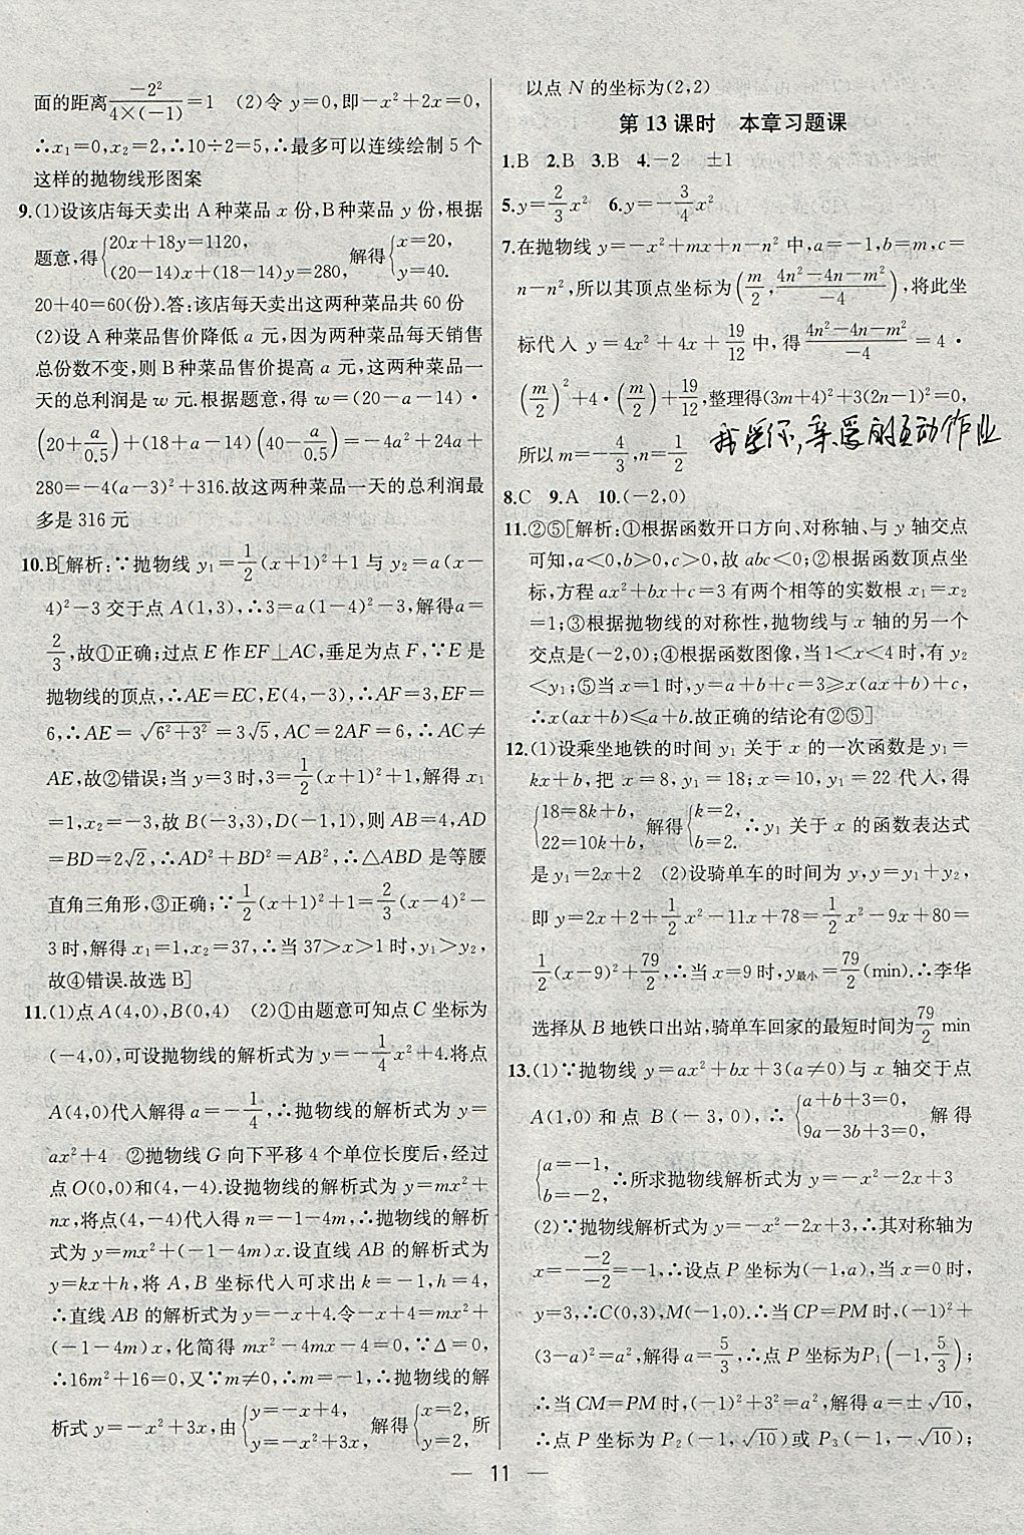 面的距离 \frac{-2^2}{4×(-1)}=1　(2)令 y=0,即-x²+2x=0,
∴x₁=0,x₂=2,∴10÷2=5,∴最多可以连续绘制 5 个
这样的抛物线形图案
9.(1)设该店每天卖出 A 种菜品 x 份,B种菜品 y 份,根据
题意,得{20x+18y=1120, (20-14)x+(18-14)y=280, 解得{x=20, y=40.
20+40=60(份).答:该店每天卖出这两种菜品共 60 份
(2)设 A 种菜品售价降低 a 元,因为两种菜品每天销售
总份数不变,则 B种菜品售价提高 a 元,这两种菜品一
天的总利润是 w 元.根据题意,得 w=(20-a-14)·
(20+\frac{a}{0.5})+(18+a-14)(40-\frac{a}{0.5})=-4a²+24a+
280=-4(a-3)²+316.故这两种菜品一天的总利润最
多是 316 元
10.B[解析:∵抛物线 y₁=\frac{1}{2}(x+1)²+1与 y₂=a(x-
4)²-3 交于点 A(1,3),∴3=a(1-4)²-3,解得a=
\frac{2}{3},故①正确;过点 E 作EF⊥AC,垂足为点 F,∵E 是
抛物线的顶点,∴AE=EC,E(4,-3),∴AF=3,EF=
6,∴AE=√(6²+3²)=3√5,AC=2AF=6,∴AC≠
AE,故②错误;当 y=3时,3=\frac{1}{2}(x+1)²+1,解得 x₁
=1,x₂=-3,故 B(-3,3),D(-1,1),则 AB=4,AD
=BD=2√2,∴AD²+BD²=AB²,∴△ABD 是等腰
直角三角形,③正确;∵\frac{1}{2}(x+1)²+1=\frac{2}{3}(x-4)²-
3时,解得 x₁=1,x₂=37,∴当 37>x>1时,y₁>y₂,
故④错误.故选 B]
11.(1)点A(4,0),B(0,4)　(2)①由题意可知点 C 坐标为
(-4,0),可设抛物线的解析式为 y=-\frac{1}{4}x²+4.将点
A(4,0)代入解得 a=-\frac{1}{4},∴抛物线的解析式为 y=
ax²+4　②抛物线 G 向下平移 4 个单位长度后,经过
点 O(0,0)和(4,-4).设抛物线的解析式为 y=mx²+
nx,将点(4,-4)代入得 n=-1-4m,∴抛物线的解析
式为 y=mx²+(-1-4m)x.设直线 AB 的解析式为
y=kx+h,将 A,B 坐标代入可求出 k=-1,h=4,
∴直线 AB 的解析式为 y=-x+4.令-x+4=mx²+
(-1-4m)x,化简得 mx²-4mx-4=0,∵Δ=0,
∴16m²+16=0,又∵m≠0,∴m=-1,∴抛物线的解
析式 y=-x²+3x,由{y=-x+4, y=-x²+3x, 解得{x=2, y=2, 所
以点 N 的坐标为(2,2)
第 13 课时　本章习题课
1.B　2.B　3.B　4.-2　±1
5.y=\frac{2}{3}x²　6.y=-\frac{3}{4}x²
7.在抛物线 y=-x²+mx+n-n² 中,a=-1,b=m,c=
n-n²,所以其顶点坐标为(\frac{m}{2},\frac{4n²-4n-m²}{-4}),将此坐
标代入 y=4x²+4x+\frac{19}{12}中,得\frac{4n²-4n-m²}{-4}=4·
(\frac{m}{2})²+4·(\frac{m}{2})+\frac{19}{12},整理得(3m+4)²+3(2n-1)²=0,
所以 m=-\frac{4}{3},n=\frac{1}{2}
我爱你,亲爱的互动作业
8.C　9.A　10.(-2,0)
11.②⑤[解析:①根据函数开口方向、对称轴、与 y 轴交点
可知,a<0,b>0,c>0,故 abc<0;②根据函数顶点坐
标,方程 ax²+bx+c=3 有两个相等的实数根 x₁=x₂
=1;③根据抛物线的对称性,抛物线与 x 轴的另一个
交点是(-2,0);④根据函数图像,当1<x<4时,有 y₂
<y₁;⑤当 x=1 时,y=a+b+c=3≥x(ax+b)+c,
∴x(ax+b)≤a+b.故正确的结论有②⑤]
12.(1)设乘坐地铁的时间 y₁ 关于 x 的一次函数是 y₁=
kx+b,把 x=8,y₁=18;x=10,y₁=22 代入,得
{18=8k+b, 22=10k+b, 解得{k=2, b=2. ∴y₁ 关于 x 的函数表达式
是 y₁=2x+2　(2)设骑单车的时间为 y,y=y₁+y₂,
即 y=2x+2+\frac{1}{2}x²-11x+78=\frac{1}{2}x²-9x+80=
\frac{1}{2}(x-9)²+\frac{79}{2},∴当 x=9 时,y最小=\frac{79}{2}(min).∴李华
选择从 B 地铁口出站,骑单车回家的最短时间为\frac{79}{2} min
13.(1)∵抛物线 y=ax²+bx+3(a≠0)与 x 轴交于点
A(1,0)和点 B(-3,0),∴{a+b+3=0, 9a-3b+3=0, 解得
{a=-1, b=-2, ∴所求抛物线解析式为 y=-x²-2x+3
(2)∵抛物线解析式为 y=-x²-2x+3,∴其对称轴为
x=-\frac{-2}{-2}=-1,∴设点 P 坐标为(-1,a),当 x=0 时,
y=3,∴C(0,3),M(-1,0).∴当 CP=PM时,(-1)²+
(3-a)²=a²,解得 a=\frac{5}{3},∴点 P 坐标为P₁(-1,\frac{5}{3});
∴当 CM=PM时,(-1)²+3²=a²,解得 a=±√10,
∴点 P 坐标为 P₂(-1,√10)或 P₃(-1,-√10);
11